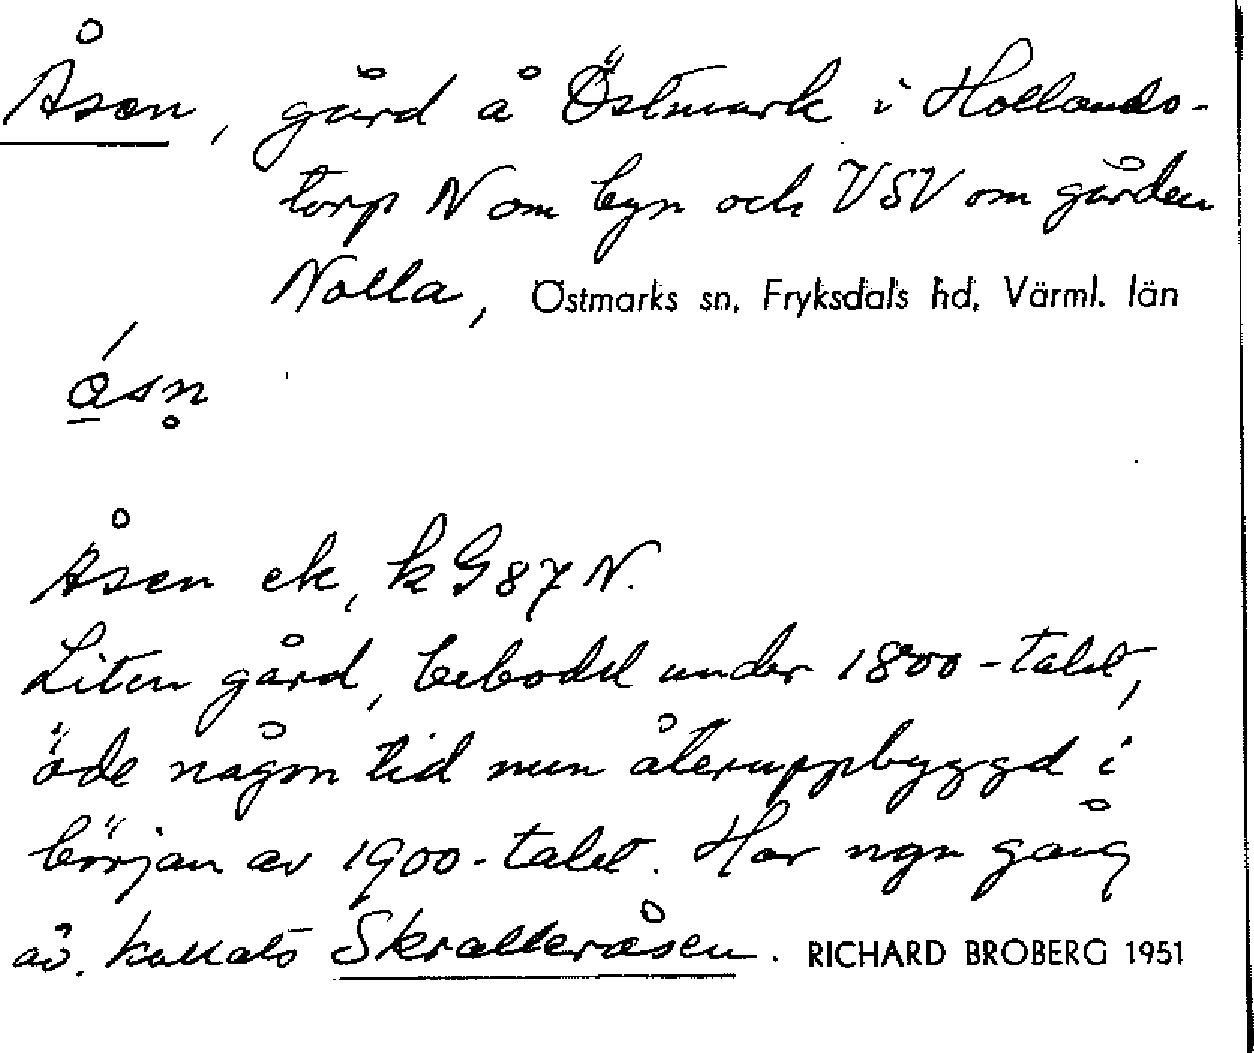 Åsen, gård å Östmark i Hollands-
torp N om byn och VSV om gården
Nolla, Östmarks sn, Fryksdals hd, Värml. län
åsn̥
Åsen ek, k G 87 N.
Liten gård, bebodd under 1800-talet,
öde någon tid men återuppbyggd i
början av 1900-talet. Har ngn gång
äv. kallats Skratteråsen. RICHARD BROBERG 1951